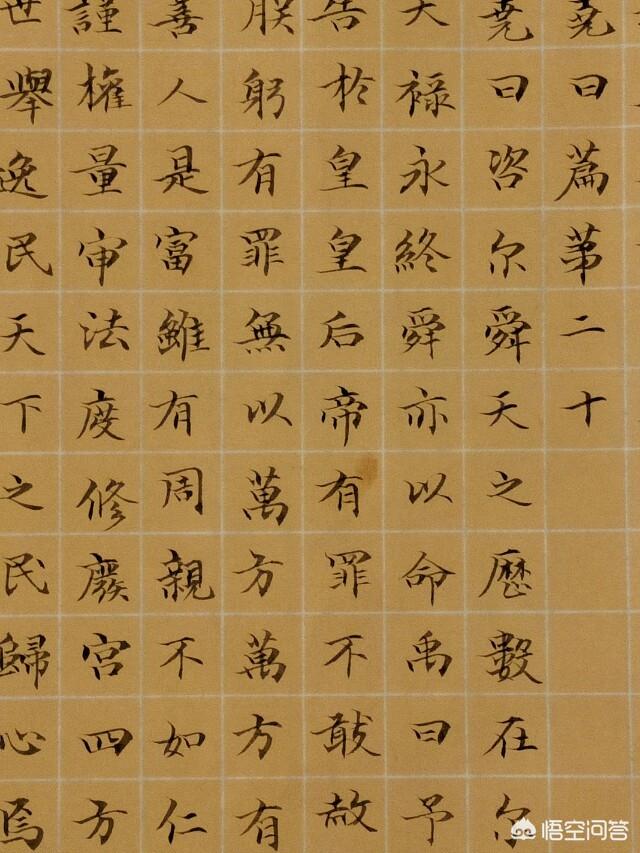 堯曰篇第二十
堯曰咨尔舜天之歷數在尔
天禄永終舜亦以命禹曰予
告於皇皇后帝有罪不敢赦
朕躬有罪無以萬方萬方有
善人是富雖有周親不如仁
謹權量审法度修廢官四方
世舉逸民天下之民歸心焉
悟空问答